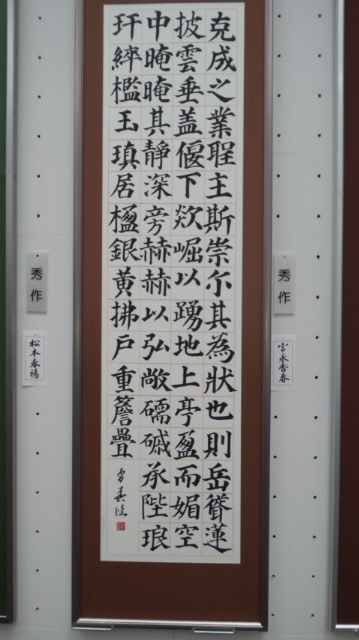 克成之業聖主斯崇尓其為狀也則岳聳蓮
披雲垂盖偃下欻崛以踴地上亭盈而媚空
中晻晻其靜深旁赫赫以弘敞礝磩承陛琅
玕綷檻玉瑱居楹銀黄拂戶重簷疊
秀作
秀作
松本春楊